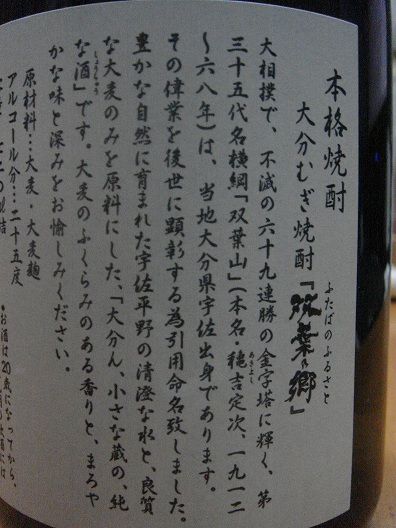 本格焼酎
大分むぎ焼酎「双葉乃郷」
ふたばのふるさと
大相撲で、不滅の六十九連勝の金字塔に輝く、第
三十五代名横綱「双葉山」（本名・穐吉定次、一九一二
あきよし
〜六八年）は、当地大分県宇佐出身であります。
その偉業を後世に顕彰する為引用命名致しました。
豊かな自然に育まれた宇佐平野の清澄な水と、良質
な大麦のみを原料にした、「大分ん、小さな蔵の、純
な酒」です。大麦のふくらみのある香りと、まろや
かな味と深みをお愉しみください。
原材料…大麦・大麦麹
アルコール分…二十五度
●お酒は20歳になってから。